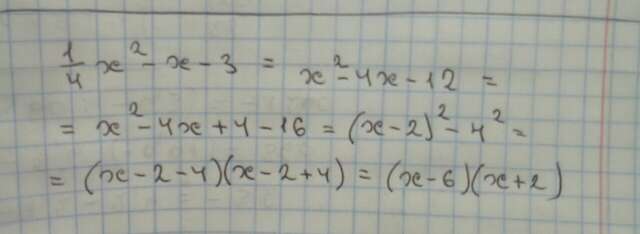 1/4 x² - x - 3 = x² - 4x - 12 =
= x² - 4x + 4 - 16 = (x - 2)² - 4² =
= (x - 2 - 4)(x - 2 + 4) = (x - 6)(x + 2)